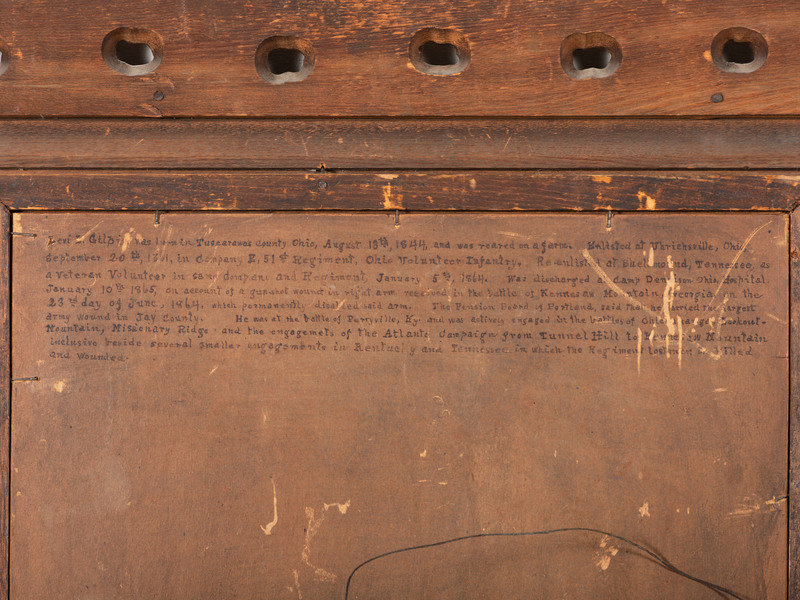 Levi L. Gilpin was born in Tuscarawas County Ohio, August 13th, 1844, and was reared on a farm. Enlisted at Uhrichsville, Ohio,
September 20th, 1861, in Company E, 51st Regiment, Ohio Volunteer Infantry. Re-enlisted at Tennessee, as
a Veteran Volunteer in same Company and Regiment, January 5th, 1864. Was discharged at Camp Dennison Ohio Hospital
January 10th 1865, on account of a gunshot wound in right arm received in the battle of Kennesaw Mountain, Georgia on the
23rd day of June, 1864, which permanently disabled said arm. The Pension Board of Portland, said that he carried the largest
army wound in Jay County. He was at the battle of Perryville, Ky. and was actively engaged in the battles of Lookout-
Mountain, Missionary Ridge and the engagements of the Atlanta Campaign from Tunnel Hill to Kennesaw Mountain
inclusive beside several smaller engagements in Kentucky and Tennessee in which the Regiment lost men in killed
and wounded.